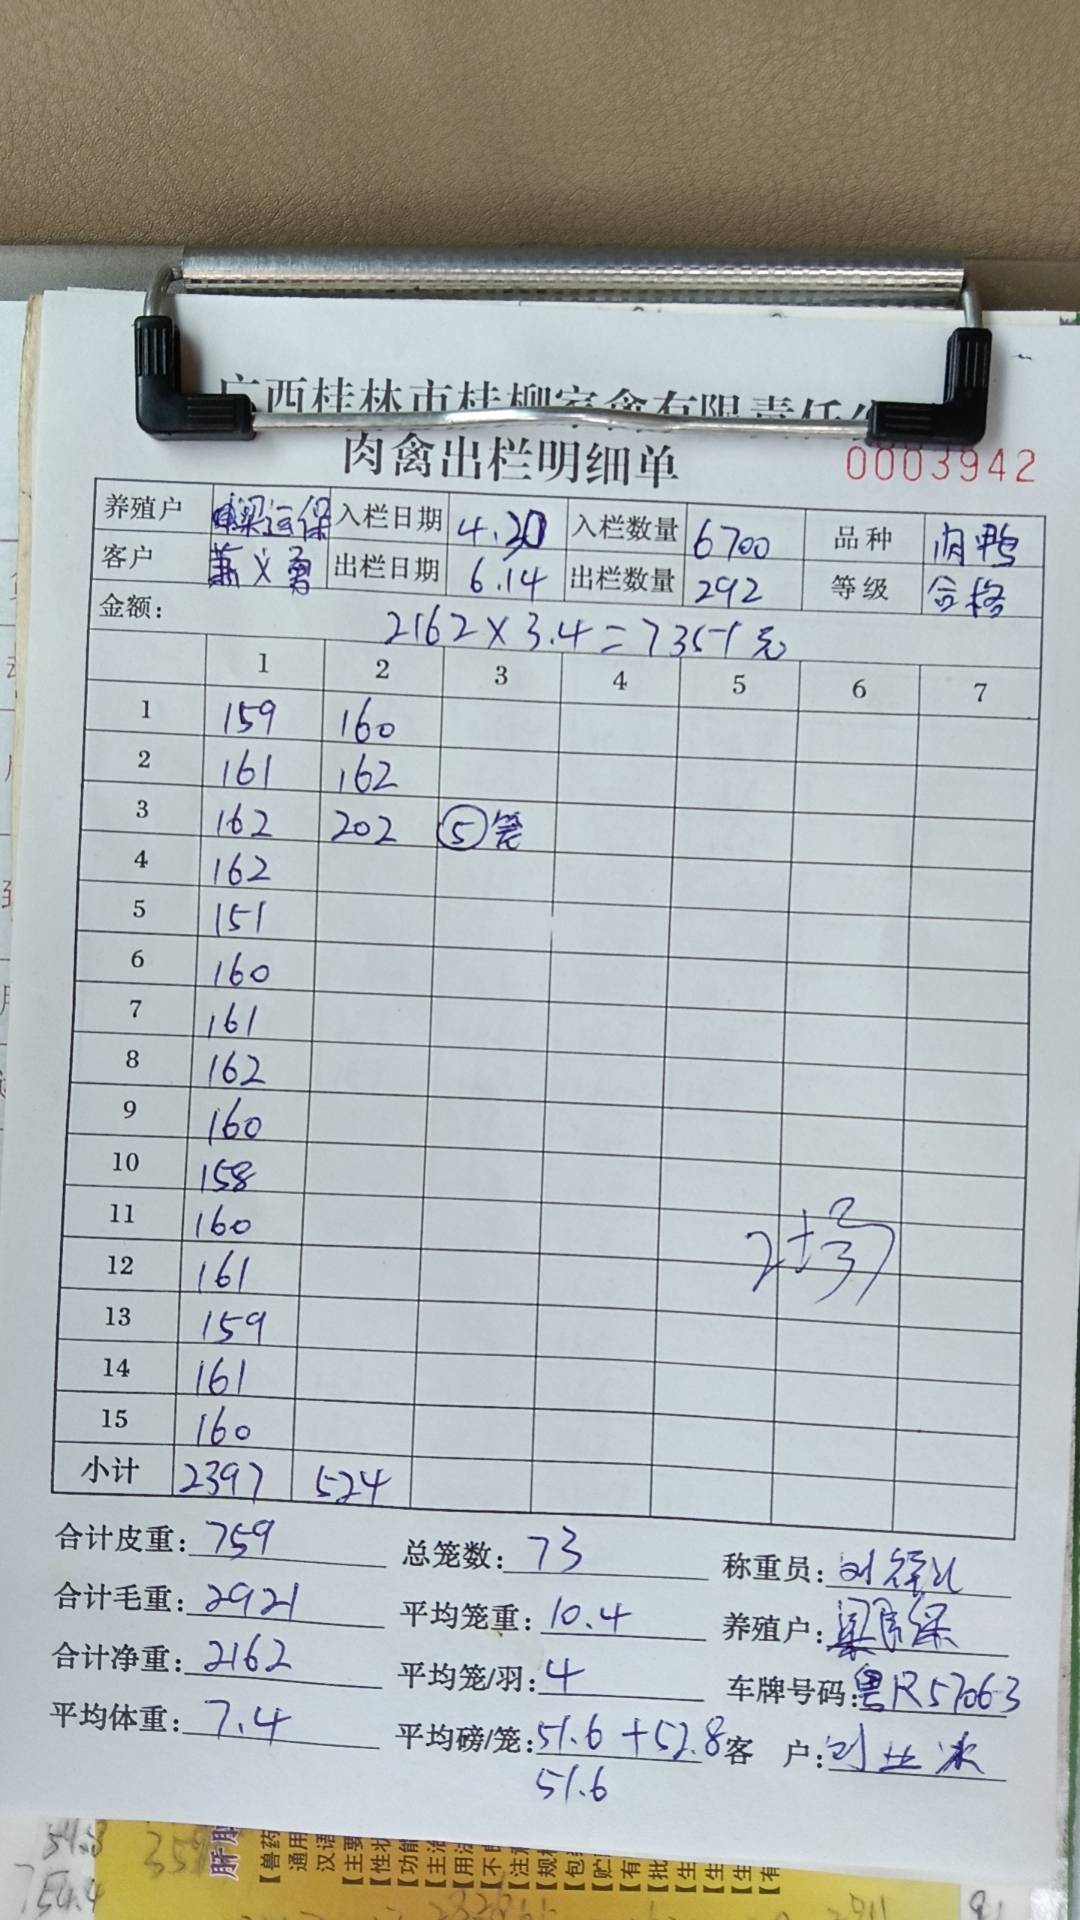 广西桂林市桂柳家禽有限责任公
肉禽出栏明细单
0003942
养殖户 梁运保 入栏日期 4.20 入栏数量 6700 品种 肉鸭
客户 萧义勇 出栏日期 6.14 出栏数量 292 等级 合格
金额: 2162×3.4=7351元
1 2 3 4 5 6 7
1 159 160
2 161 162
3 162 202 ⑤笼
4 162
5 151
6 160
7 161
8 162
9 160
10 158
11 160
12 161
13 159
14 161
15 160
小计 2397 524
合计皮重: 759 总笼数: 73 称重员:
合计毛重: 2921 平均笼重: 10.4 养殖户: 梁 保
合计净重: 2162 平均笼/羽: 4 车牌号码: 粤R57063
平均体重: 7.4 平均磅/笼: 51.6+52.8 客 户:
51.6
54.8
754.4